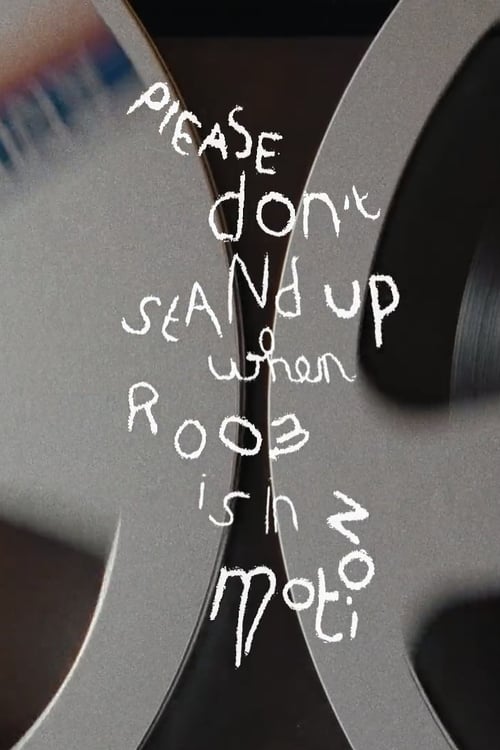 PlEASE
don't
StANd UP
when
ROOM
is In
motioN